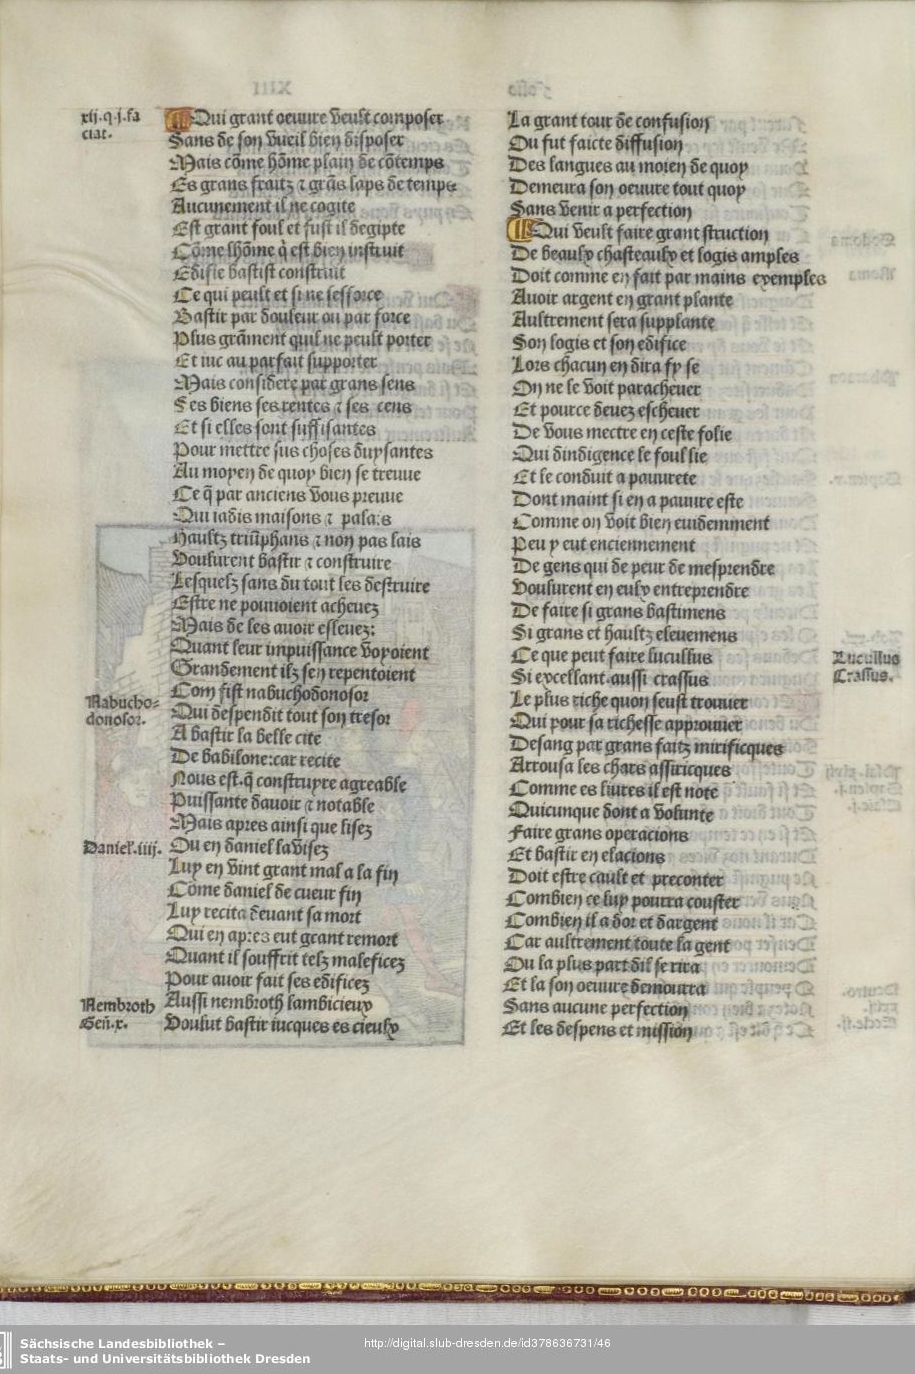 xij.q.j.fa
ciat.
Qui grant oeuure veult composer
Sans de son vueil bien disposer
Mais cõme hõme plain de cõtemps
Es grans fraitz ⁊ grãs laps de temps
Aucunement il ne cogite
Est grant foul et fust il degipte
Cõme lhõme q̃ est bien instruit
Edifie bastist construit
Ce qui peult et si ne sefforce
Bastir par douleur ou par force
Plus grãment quil ne peult porter
Et iuc au parfait supporter
Mais considere par grans sens
Ses biens ses rentes ⁊ ses cens
Et si elles sont suffisantes
Pour mettre sus choses duysantes
Au moyen de quoy bien se treuue
Ce q̃ par anciens vous preuue
Qui iadis maisons ⁊ palais
Haultz triũphans ⁊ non pas lais
Voulurent bastir ⁊ construire
Lesquelz sans du tout les destruire
Estre ne pouuoient acheuez
Mais de les auoir esleuez:
Quant leur impuissance voyoient
Grandement ilz sen repentoient
Com fist nabuchodonosor
Nabucho-
donosor.
Qui despendit tout son tresor
A bastir la belle cite
De babilone:car recite
Nous est.q̃ construyre agreable
Puissante dauoir ⁊ notable
Mais apres ainsi que lisez
Daniel.iiij.
Ou en daniel lavisez
Luy en vint grant mal a la fin
Cõme daniel de cueur fin
Luy recita deuant sa mort
Qui en apres eut grant remort
Quant il souffrit telz maleficez
Pour auoir fait ses edificez
Nembroth
Geñ.x.
Aussi nembroth lambicieux
Voulut bastir iucques es cieulx
La grant tour de confusion
Ou fut faicte diffusion
Des langues au moien de quoy
Demeura son oeuure tout quoy
Sans venir a perfection
Qui veult faire grant struction
De beaulx chasteaulx et logis amples
Doit comme en fait par mains exemples
Auoir argent en grant plante
Aultrement sera supplante
Son logis et son edifice
Lors chacun en dira fy se
On ne le voit paracheuer
Et pource deuez escheuer
De vous mectre en ceste folie
Qui dindigence le foul lie
Et le conduit a pauurete
Dont maint si en a pauure este
Comme on voit bien euidemment
Peu y eut enciennement
De gens qui de peur de mesprendre
Voulurent en eulx entreprendre
De faire si grans bastimens
Si grans et haultz eleuemens
Ce que peut faire lucullus
Lucullus
Crassus.
Si excellant.aussi crassus
Le plus riche quon seust trouuer
Qui pour sa richesse approuuer
De sang par grans faitz mirificques
Arrousa les chars assiricques
Comme es liures il est note
Quicunque dont a volunte
Faire grans operacions
Et bastir en elacions
Doit estre cault et preconter
Combien ce luy pourra couster
Combien il a dor et dargent
Car aultrement toute la gent
Ou la plus part dil se rira
Et la son oeuure demourra
Sans aucune perfection
Et les despens et mission
Sächsische Landesbibliothek –
Staats- und Universitätsbibliothek Dresden
http://digital.slub-dresden.de/id378636731/46